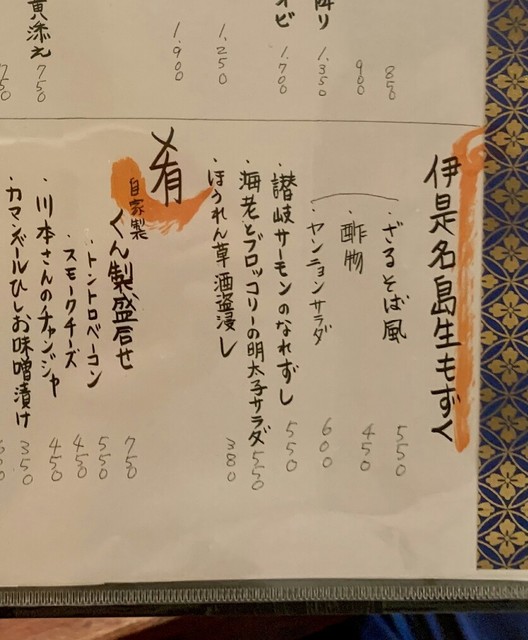 降り 1,350
900
850
1,700
1,250
1,900
黄添え 750
伊是名島生もずく
・ざるそば風 550
・酢物 450
・ヤンニョンサラダ 600
・讃岐サーモンのなれずし 550
・海老とブロッコリーの明太子サラダ 550
・ほうれん草酒盗浸し 380
肴
自家製くん製盛合せ 750
・トントロベーコン 550
・スモークチーズ 450
・川本さんのチャンジャ 450
・カマンベールひしお味噌漬け 350